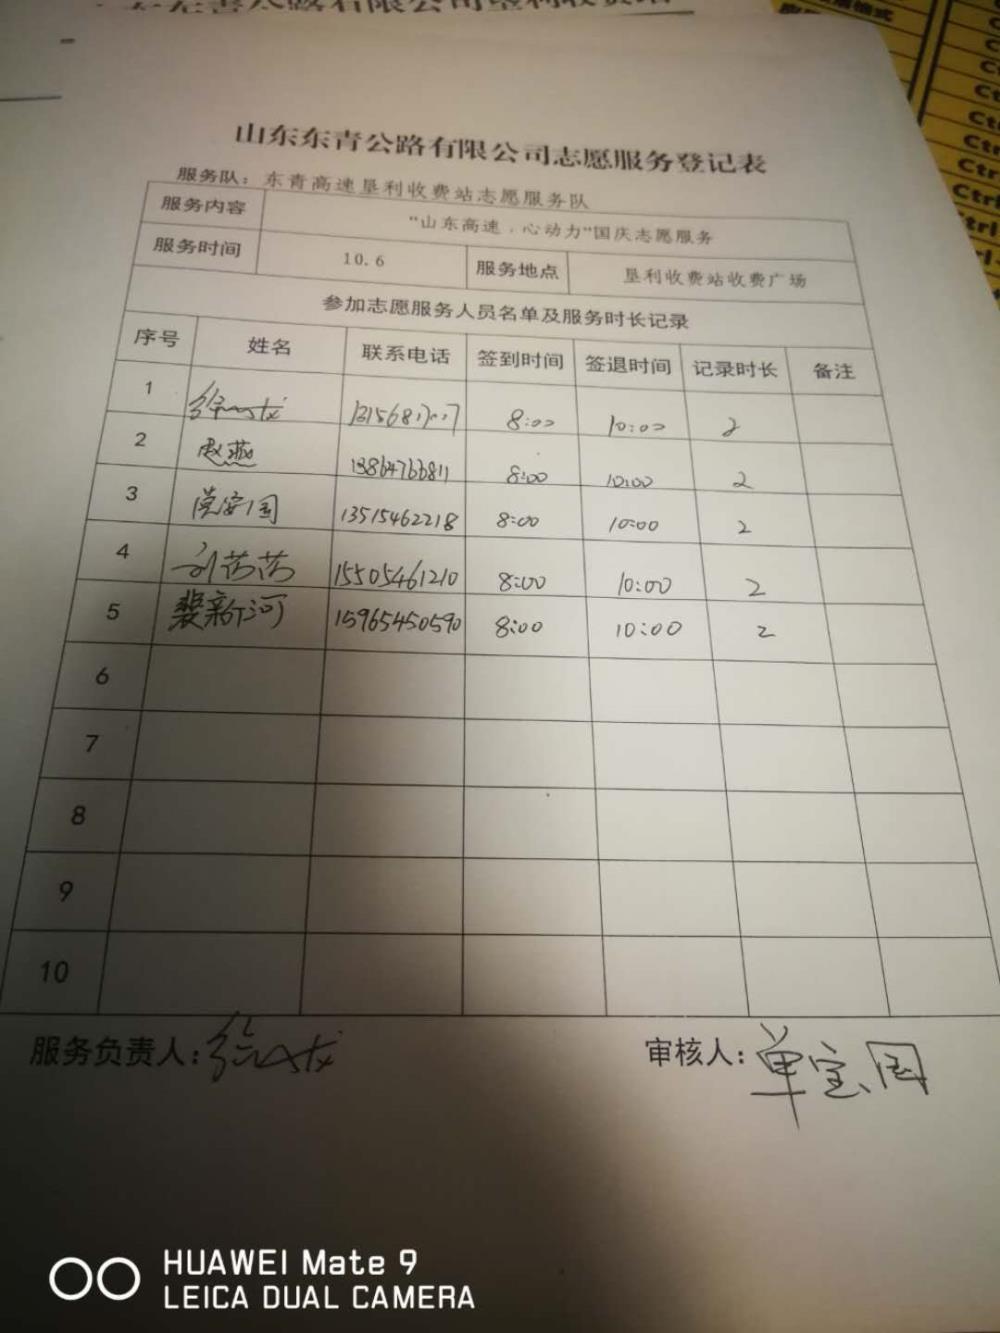 山东东青公路有限公司志愿服务登记表
服务队：东青高速垦利收费站志愿服务队
服务内容 “山东高速，心动力”国庆志愿服务
服务时间 10.6 服务地点 垦利收费站收费广场
参加志愿服务人员名单及服务时长记录
序号 姓名 联系电话 签到时间 签退时间 记录时长 备注
1 8:00 10:00 2
2 赵燕 13864766811 8:00 10:00 2
3 党安国 13515462218 8:00 10:00 2
4 刘芮芮 15505461210 8:00 10:00 2
5 裴新河 15965450590 8:00 10:00 2
6
7
8
9
10
服务负责人： 审核人：单宝国
HUAWEI Mate 9
LEICA DUAL CAMERA